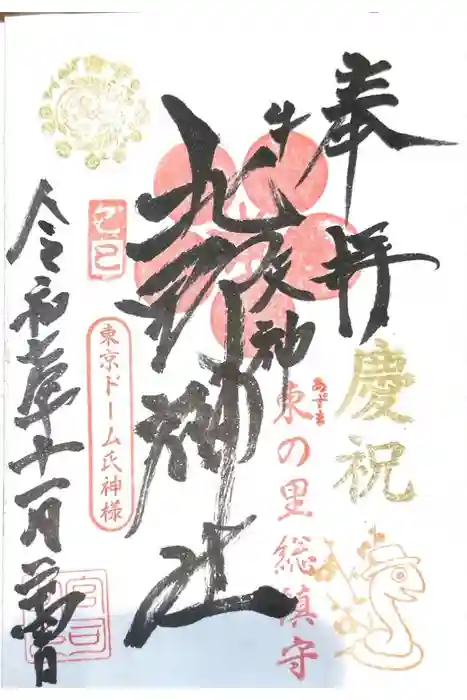 奉拝
慶祝
牛天神
東の里総鎮守
あずま
北野神社
乙巳
東京ドーム氏神様
令和七年十一月